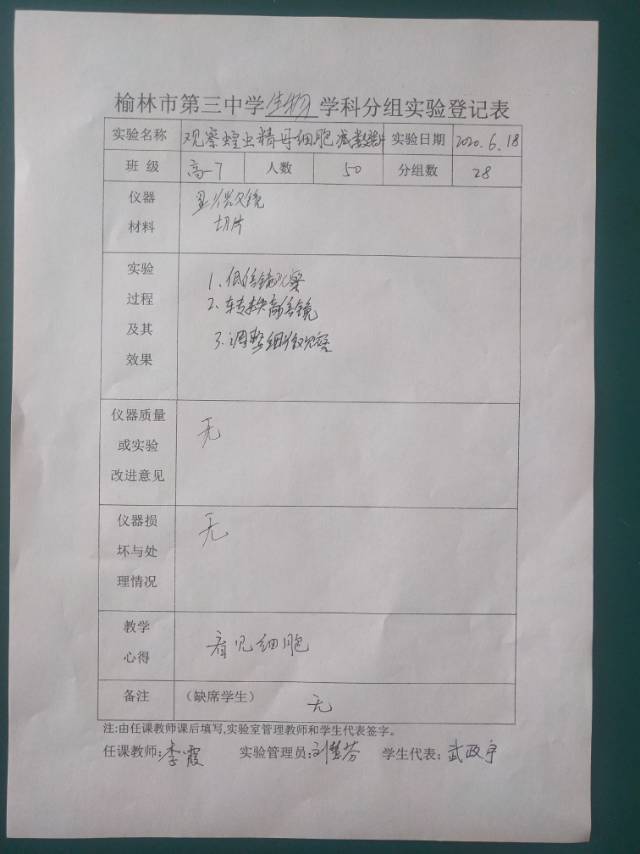 榆林市第三中学生物学科分组实验登记表
实验名称 观察蝗虫精母细胞减数分裂 实验日期 2020.6.18
班 级 高一7 人数 50 分组数 28
仪器 显微镜
材料 切片
实验
过程
及其
效果
1、低倍镜观察
2、转换高倍镜
3、调整细准观察
仪器质量
或实验
改进意见
无
仪器损
坏与处
理情况
无
教学
心得
看见细胞
备注 (缺席学生) 无
注:由任课教师课后填写,实验室管理教师和学生代表签字。
任课教师:李霞 实验管理员:刘慧芬 学生代表:武政宇